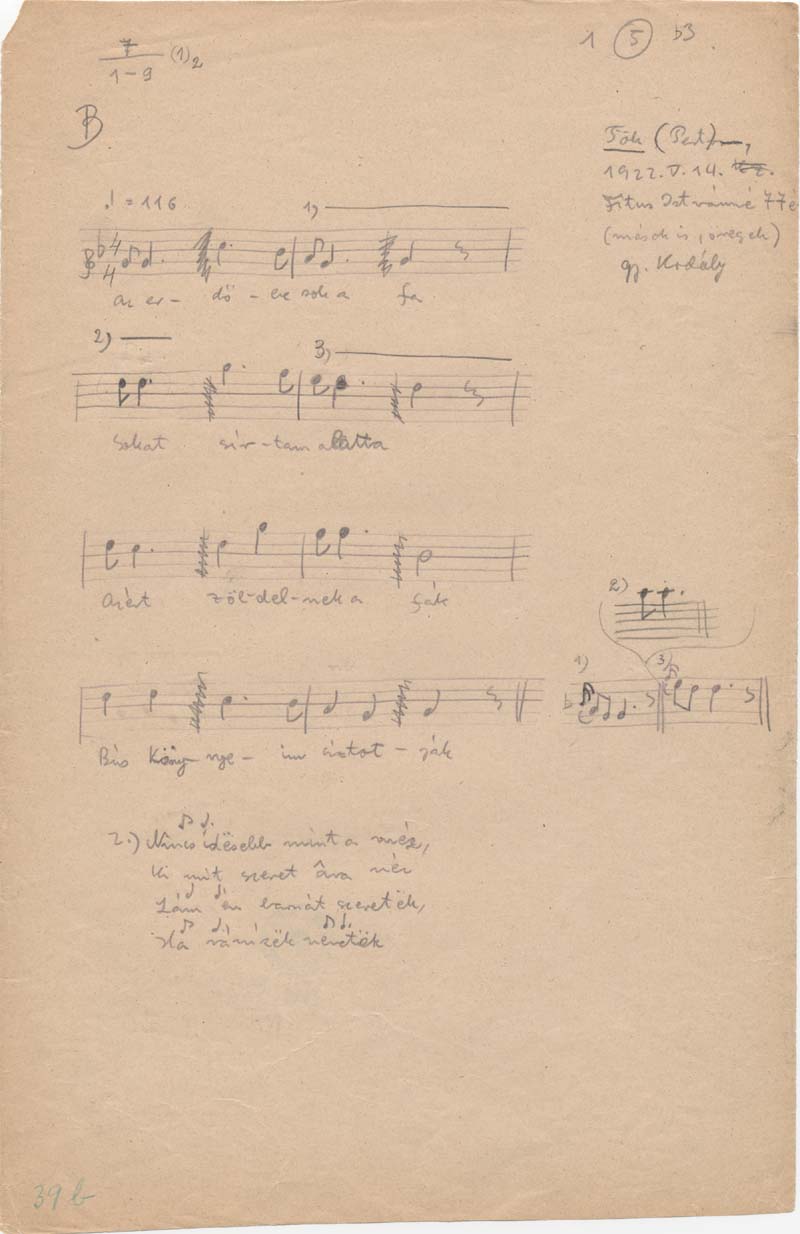 7
1–9 (1)2
1 5 b3
B
Tök (Pest)
1922. V. 14.
Titus Istvánné 77 é
(mások is, öregek)
gy. Kodály
♩ = 116 1)
4
4
Az er- dő - be sok a fa
2) 3)
Sokat sír-tam alatta
Azért zöl-del-nek a fák
2)
1) 3)
Bús Köny- nye - im áztot - ják
2.) Nincs idësebb mint a méz,
Ki mit szeret arra néz
Lám én barnát szeretëk,
Ha ránízëk nevetëk
39 b